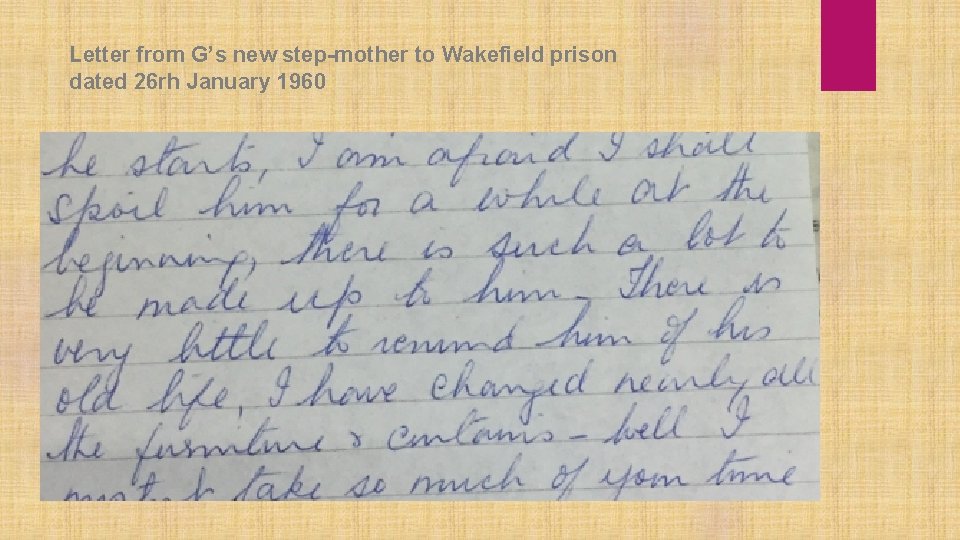 Letter from G’s new step-mother to Wakefield prison
dated 26 rh January 1960
he starts, I am afraid I shall
spoil him for a while at the
beginning, there is such a lot to
be made up to him. There is
very little to remind him of his
old life, I have changed nearly all
the furniture & curtains - well I
take so much of your time